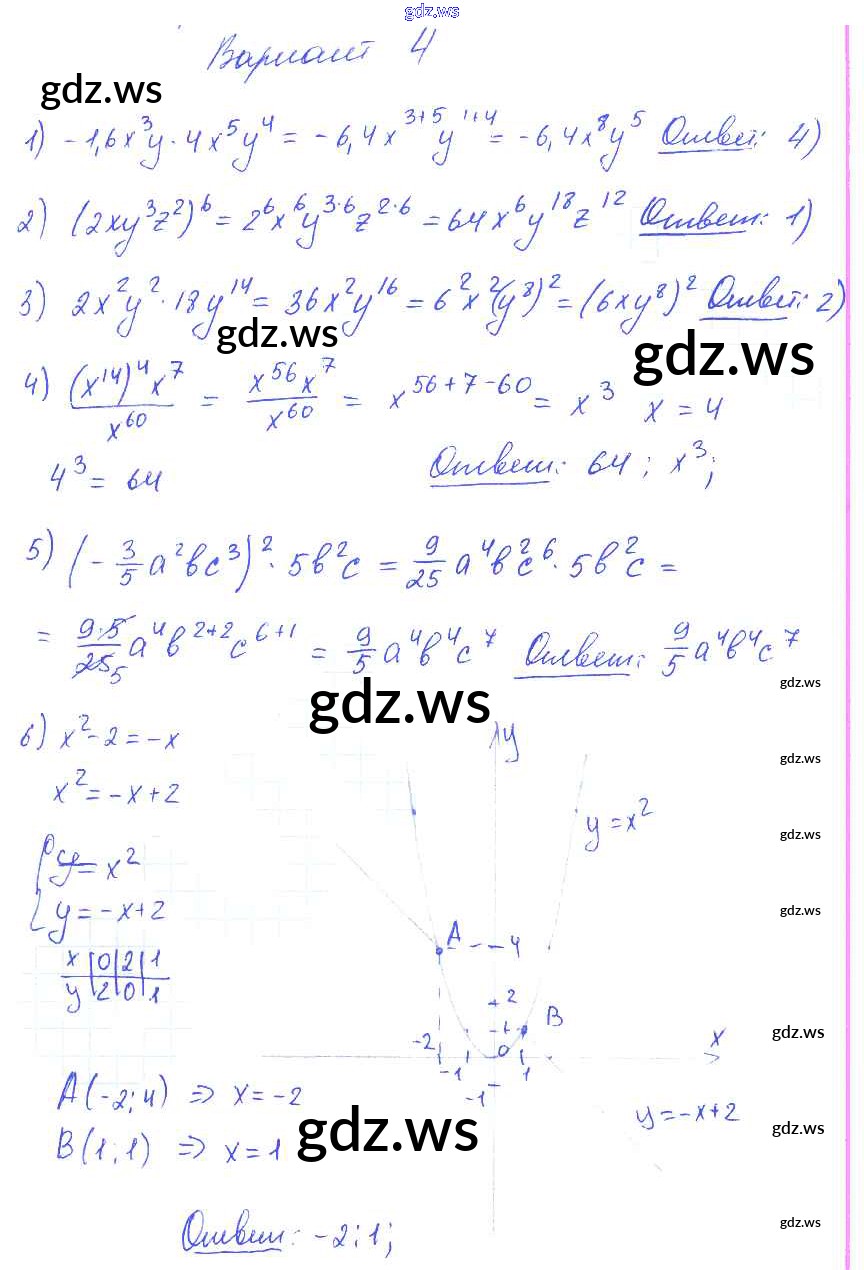 gdz.ws
Вариант 4
gdz.ws
1) -1,6x³y · 4x⁵y⁴ = -6,4x³⁺⁵y¹⁺⁴ = -6,4x⁸y⁵ Ответ: 4)
2) (2xy³z²)⁶ = 2⁶x⁶y³·⁶z²·⁶ = 64x⁶y¹⁸z¹² Ответ: 1)
3) 2x²y² · 18y¹⁴ = 36x²y¹⁶ = 6²x²(y⁸)² = (6xy⁸)² Ответ: 2)
gdz.ws
gdz.ws
4) (x¹⁴)⁴x⁷/x⁶⁰ = x⁵⁶x⁷/x⁶⁰ = x⁵⁶⁺⁷⁻⁶⁰ = x³ x = 4
4³ = 64 Ответ: 64; x³;
5) (-3/5 a²bc³)² · 5b²c = 9/25 a⁴b²c⁶ · 5b²c =
= 9·5/25 5 a⁴b²⁺²c⁶⁺¹ = 9/5 a⁴b⁴c⁷ Ответ: 9/5 a⁴b⁴c⁷
gdz.ws
gdz.ws
6) x² - 2 = -x
x² = -x + 2
y = x²
y = -x + 2
x | 0 | 2 | 1
y | 2 | 0 | 1
y
gdz.ws
y = x²
gdz.ws
gdz.ws
A - - 4
2
B
1
gdz.ws
-2 -1 0 1 x
-1
y = -x + 2
A(-2; 4) => x = -2
B(1; 1) => x = 1
gdz.ws
gdz.ws
Ответ: -2; 1;
gdz.ws